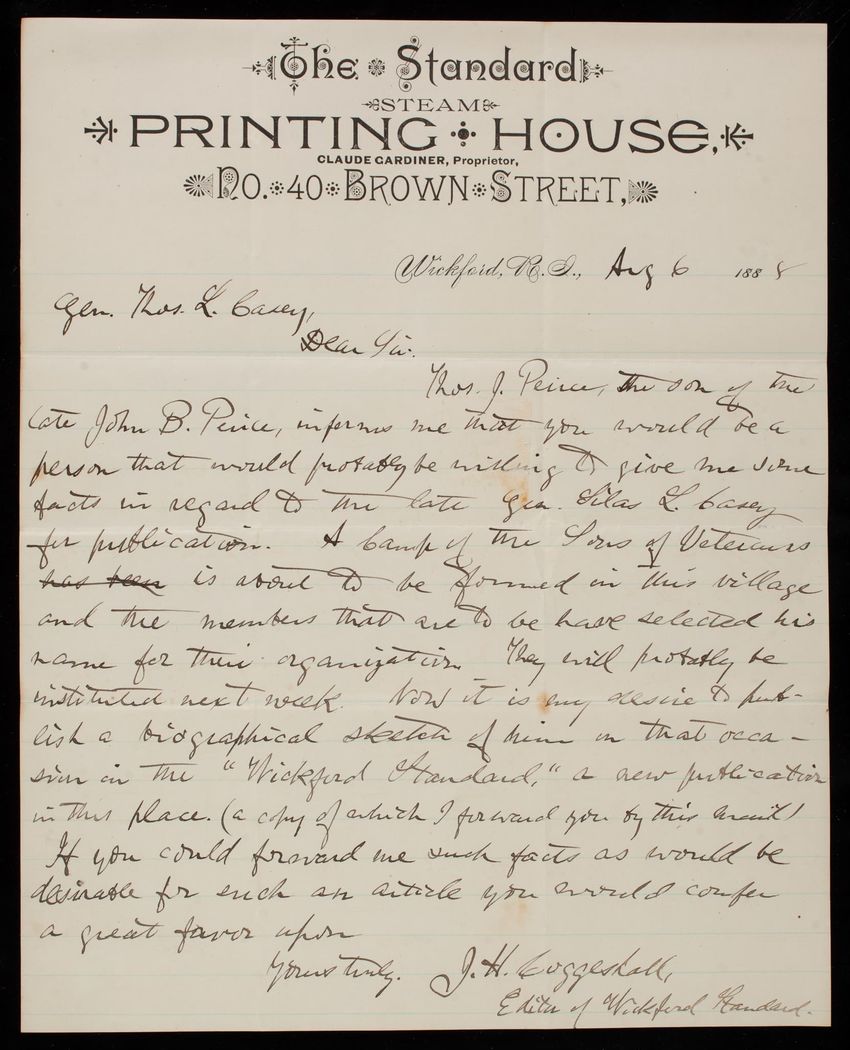 The Standard
STEAM
PRINTING HOUSE,
CLAUDE GARDINER, Proprietor,
NO. 40 BROWN STREET,
Wickford, R. I., Aug 6 1888
Gen. Thos. L. Casey,
Dear Sir:
Thos. J. Peirce, the son of the
late John B. Peirce, informs me that you would be a
person that would probably be willing to give me some
facts in regard to the late Gen. Silas L. Casey
for publication. A Camp of the Sons of Veterans
has been is about to be formed in this village
and the members that are to be have selected his
name for their organization. They will probably be
instituted next week. Now it is my desire to pub-
lish a biographical sketch of him on that occa-
sion in the "Wickford Standard," a new publication
in this place. (a copy of which I forward you by this mail)
If you could forward me such facts as would be
desirable for such an article you would confer
a great favor upon
Yours truly. J. H. Coggeshall,
Editor of Wickford Standard.